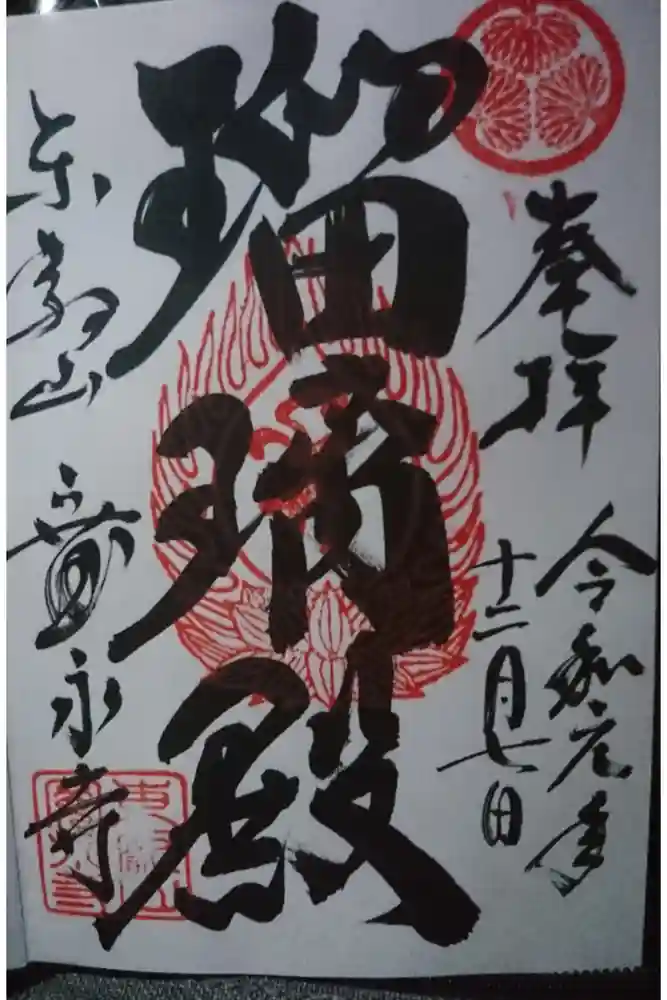 奉拝
令和元年
十二月七日
瑠璃殿
東叡山 寛永寺